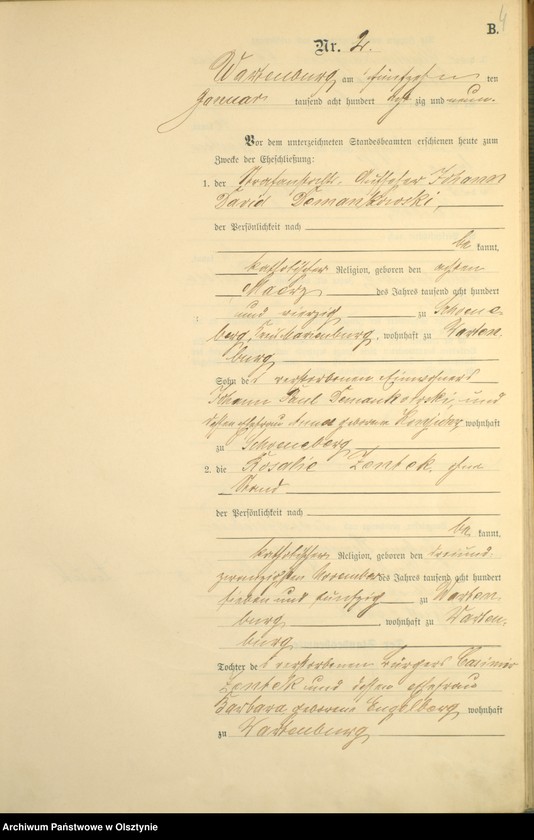 B. 4
Nr. 2.
Wartenburg am fünfzehn ten
Januar tausend acht hundert acht zig und neun.
Vor dem unterzeichneten Standesbeamten erschienen heute zum
Zwecke der Eheschließung:
1. der Strafanstalts-Aufseher Johann
David Domankowski,
der Persönlichkeit nach
be kannt,
katholischer Religion, geboren den achten
Maerz des Jahres tausend acht hundert
und vierzig zu Schoene-
berg, Kreis Marienburg, wohnhaft zu Warten-
burg
Sohn des verstorbenen Einwohners
Johann Paul Domankowski und
dessen Ehefrau Anna geborene wohnhaft
zu Schoeneberg
2. die Rosalie Zentek, ohne
Stand
der Persönlichkeit nach
be kannt,
katholischer Religion, geboren den dreiund-
zwanzigsten November des Jahres tausend acht hundert
sieben und fünfzig zu Warten-
burg, wohnhaft zu Warten-
burg
Tochter des verstorbenen Bürgers Casimir
Zentek und dessen Ehefrau
Barbara geborene Engelberg wohnhaft
zu Wartenburg
Archiwum Państwowe w Olsztynie